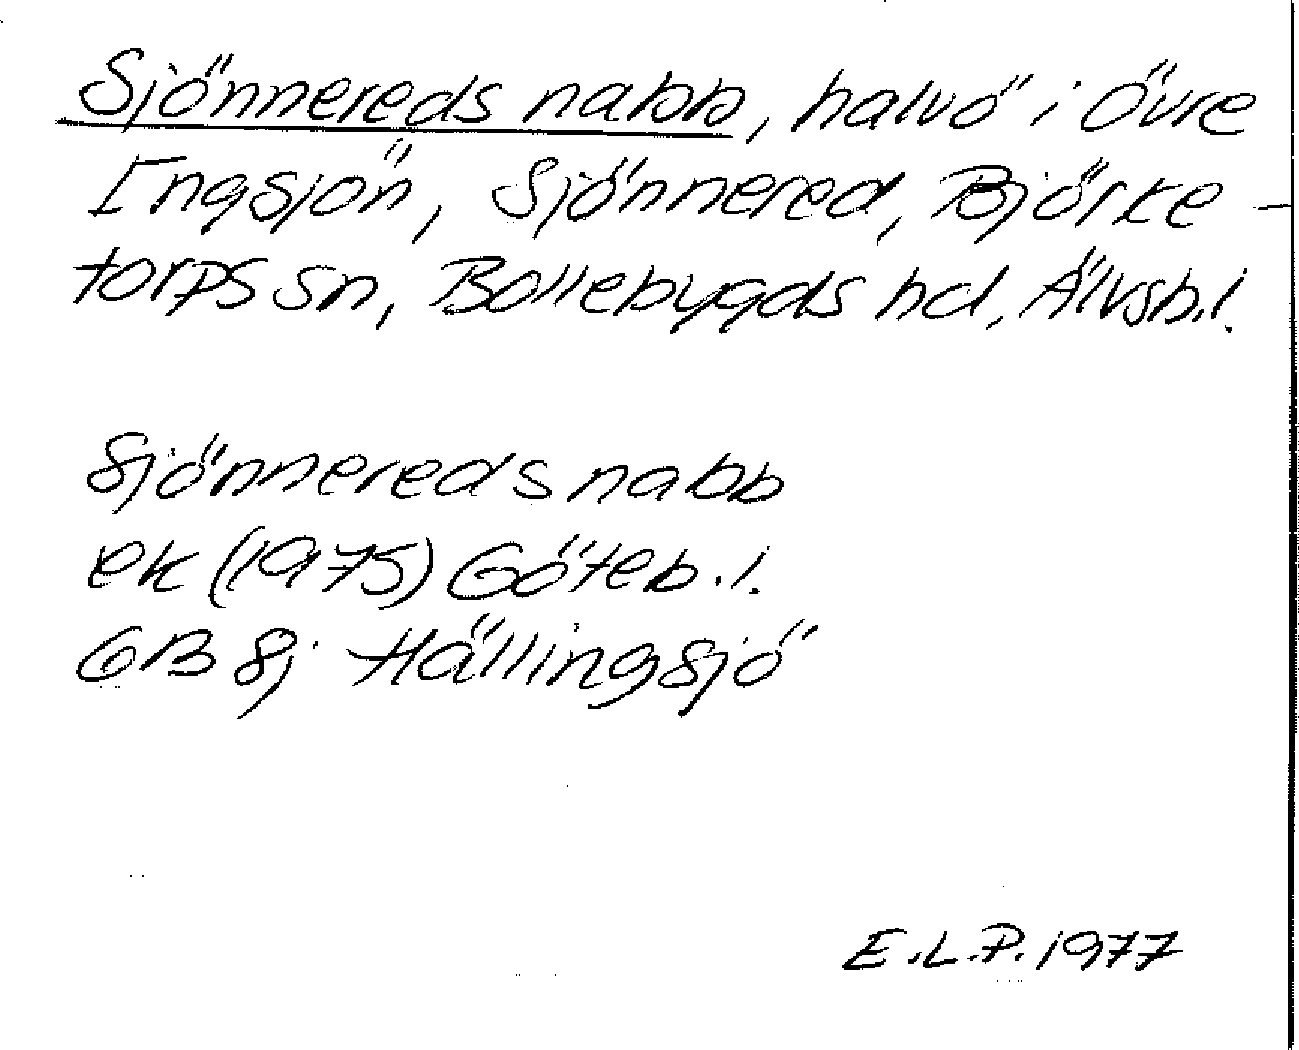 Sjönnereds nabb, halvö i Övre
Ingsjön, Sjönnered, Björke-
torps sn, Bollebygds hd, Älvsb.l.
Sjönnereds nabb
ek (1975) Göteb.l.
GB Sj Hällingsjö
E.L.P. 1977